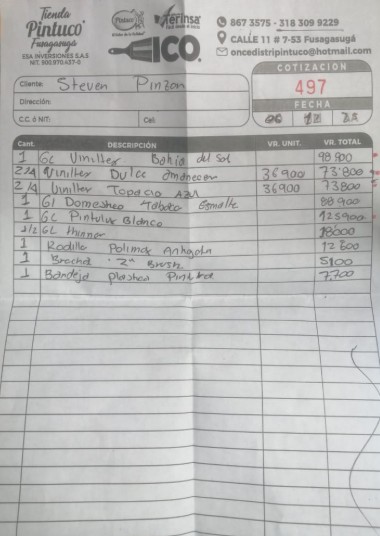 Tienda
Pintuco
Fusagasugá
ESA INVERSIONES S.A.S
NIT. 900.970.437-0
Pintuco
ferinsa
ICO.
867 3575 - 318 309 9229
CALLE 11 # 7-53 Fusagasugá
oncedistripintuco@hotmail.com
COTIZACIÓN
497
FECHA
06 12 21
Cliente: Steven Pinzon
Dirección:
C.C. ó NIT: Cel:
Cant. DESCRIPCIÓN VR. UNIT. VR. TOTAL
1 GL Viniltex Bahia del Sol 98 800
2 1/4 Viniltex Dulce Amanecer 36900 73800
2 1/4 Viniltex Topacio Azul 36900 73800
1 Gl Domestico Tabaco Esmalte 88 900
1 GL Pintulux Blanco 125900
1/2 GL thinner 18000
1 Rodillo Polimax 12 600
1 Brocha 2" 5100
1 Bandeja plastica Pintura 7,700